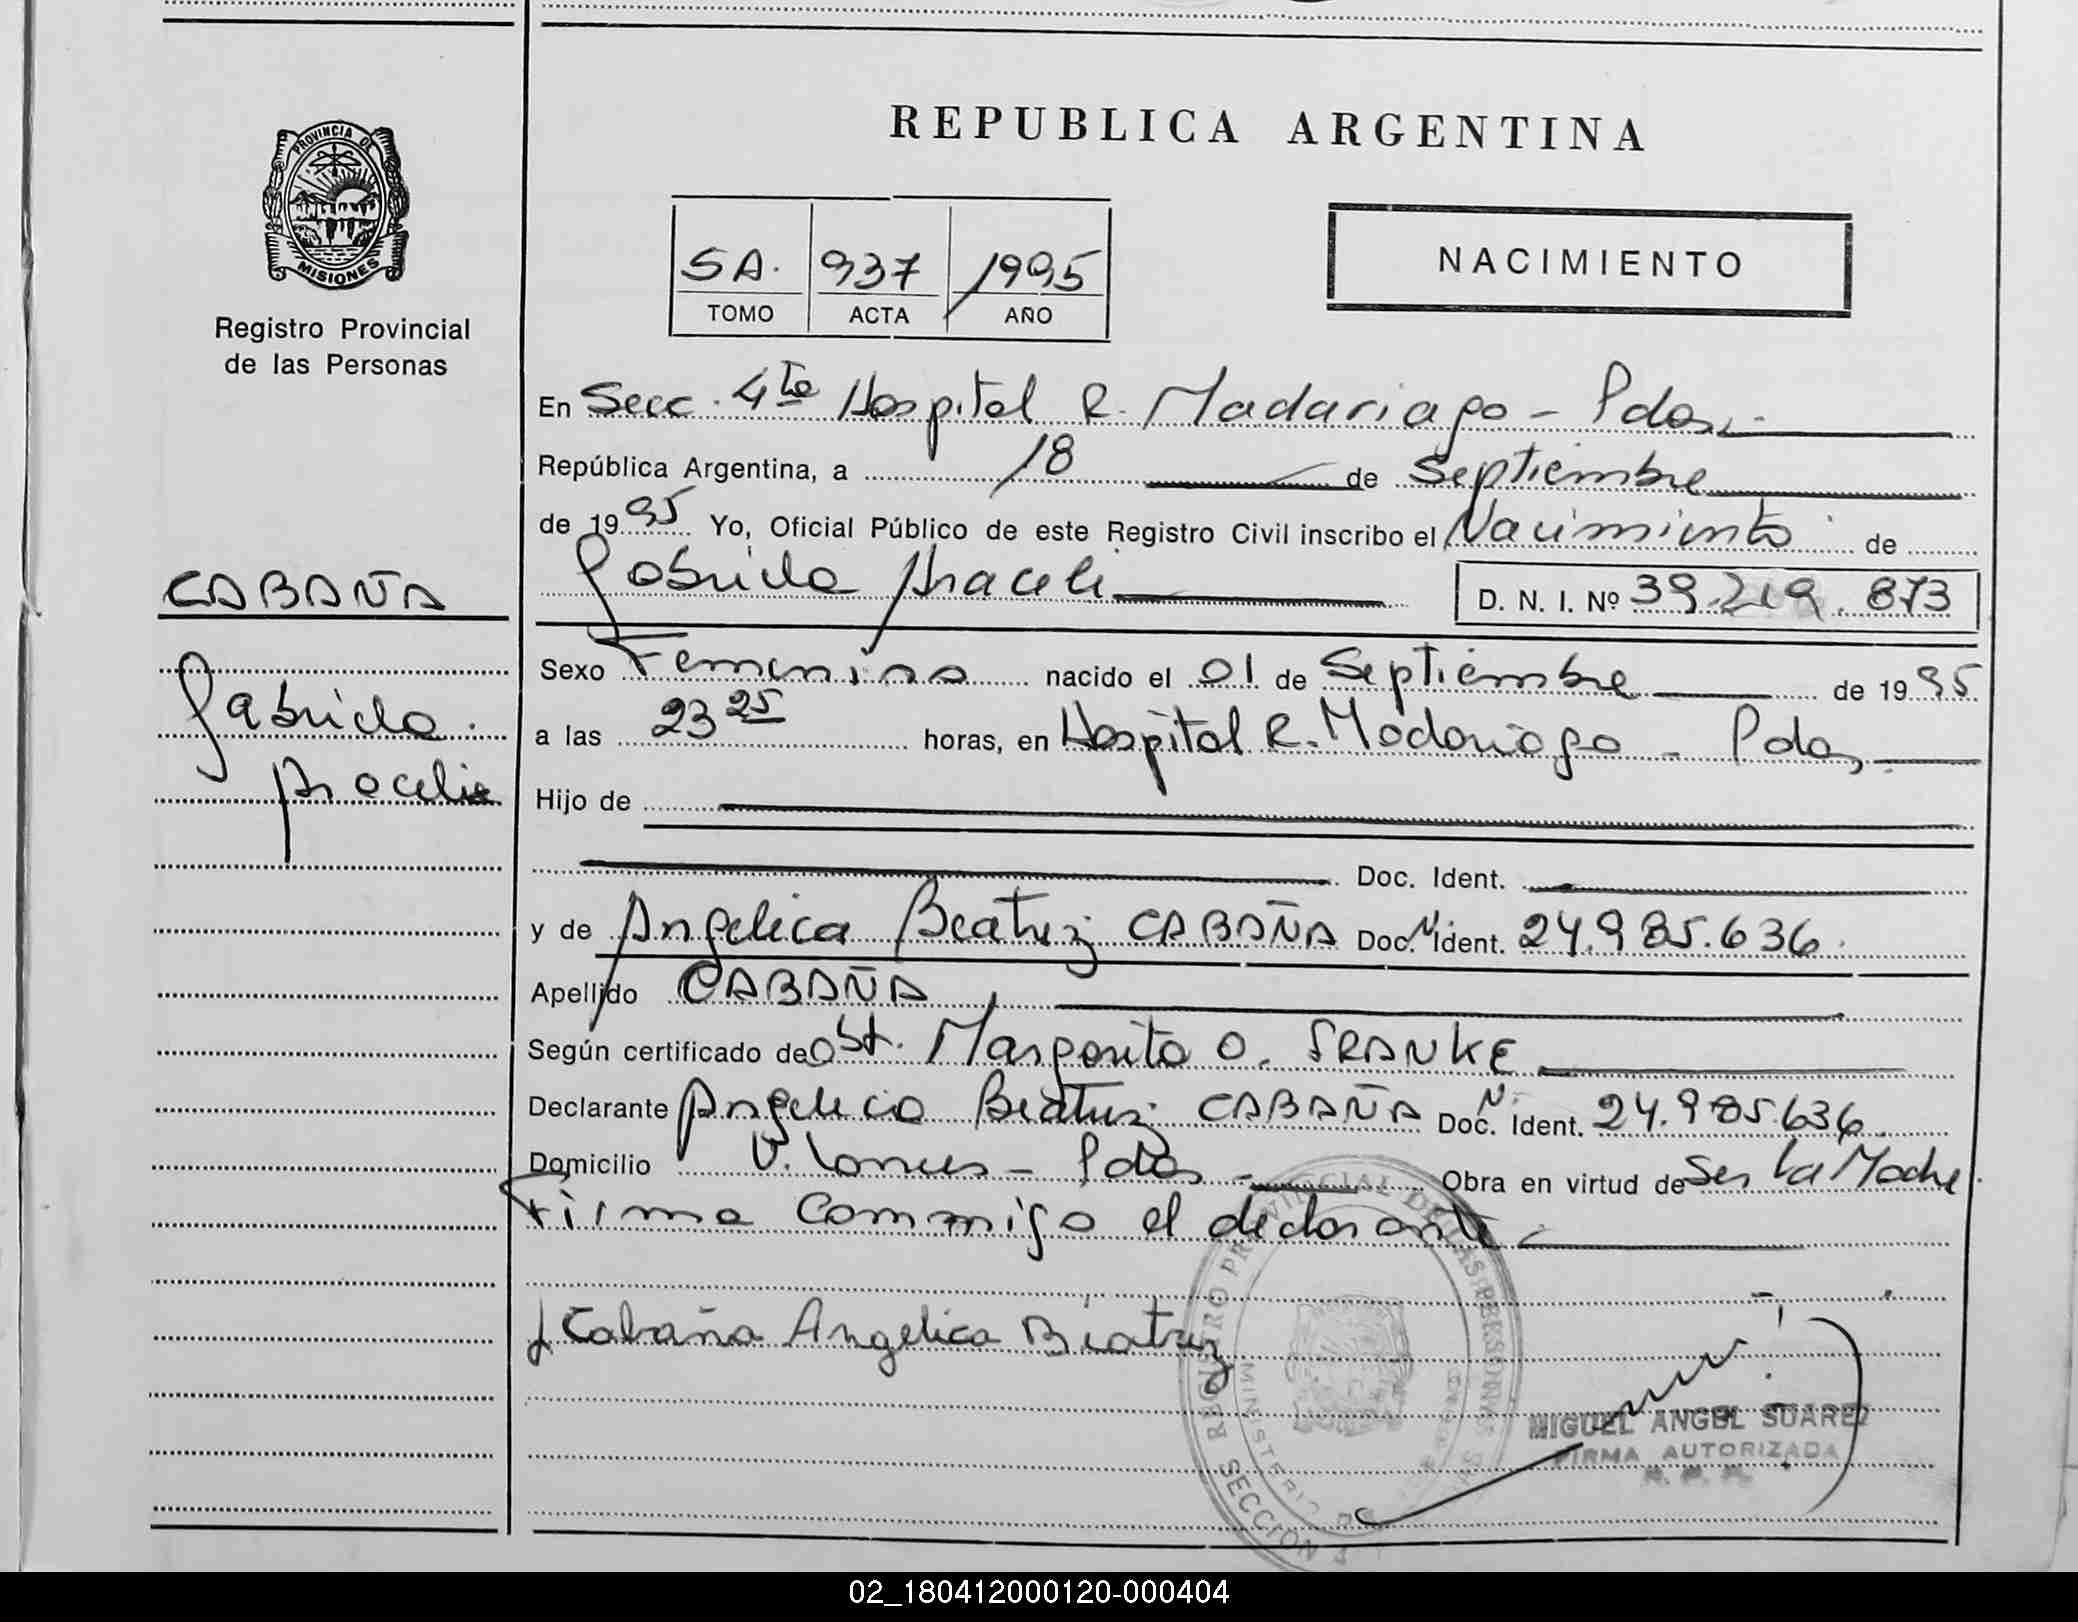 REPUBLICA ARGENTINA
PROVINCIA DE
MISIONES
Registro Provincial
de las Personas
5A. 937 1995
TOMO ACTA AÑO
NACIMIENTO
En Secc. 4ta Hospital R. Madariaga - Pdas.
República Argentina, a 18 de Septiembre
de 1995 Yo, Oficial Público de este Registro Civil inscribo el Nacimiento de
Gabriela Araceli D. N. I. Nº 39.219.873
CABAÑA
Gabriela
Araceli
Sexo Femenino nacido el 01 de Septiembre de 1995
a las 23 25 horas, en Hospital R. Madariaga - Pdas.
Hijo de
Doc. Ident.
y de Angelica Beatriz CABAÑA Doc. N. Ident. 24.985.636.
Apellido CABAÑA
Según certificado de Obst. Margarita O. FRANKE
Declarante Angelica Beatriz CABAÑA Doc. N. Ident. 24.985.636.
Domicilio V. Lanus - Pdas - Obra en virtud de Ser la Madre
Firma Commigo el declarante
Cabaña Angelica Beatriz
REGISTRO PROVINCIAL DE LAS PERSONAS
MINISTERIO DE
SECCION 4
MIGUEL ANGEL SUAREZ
FIRMA AUTORIZADA
R. P. P.
02_180412000120-000404